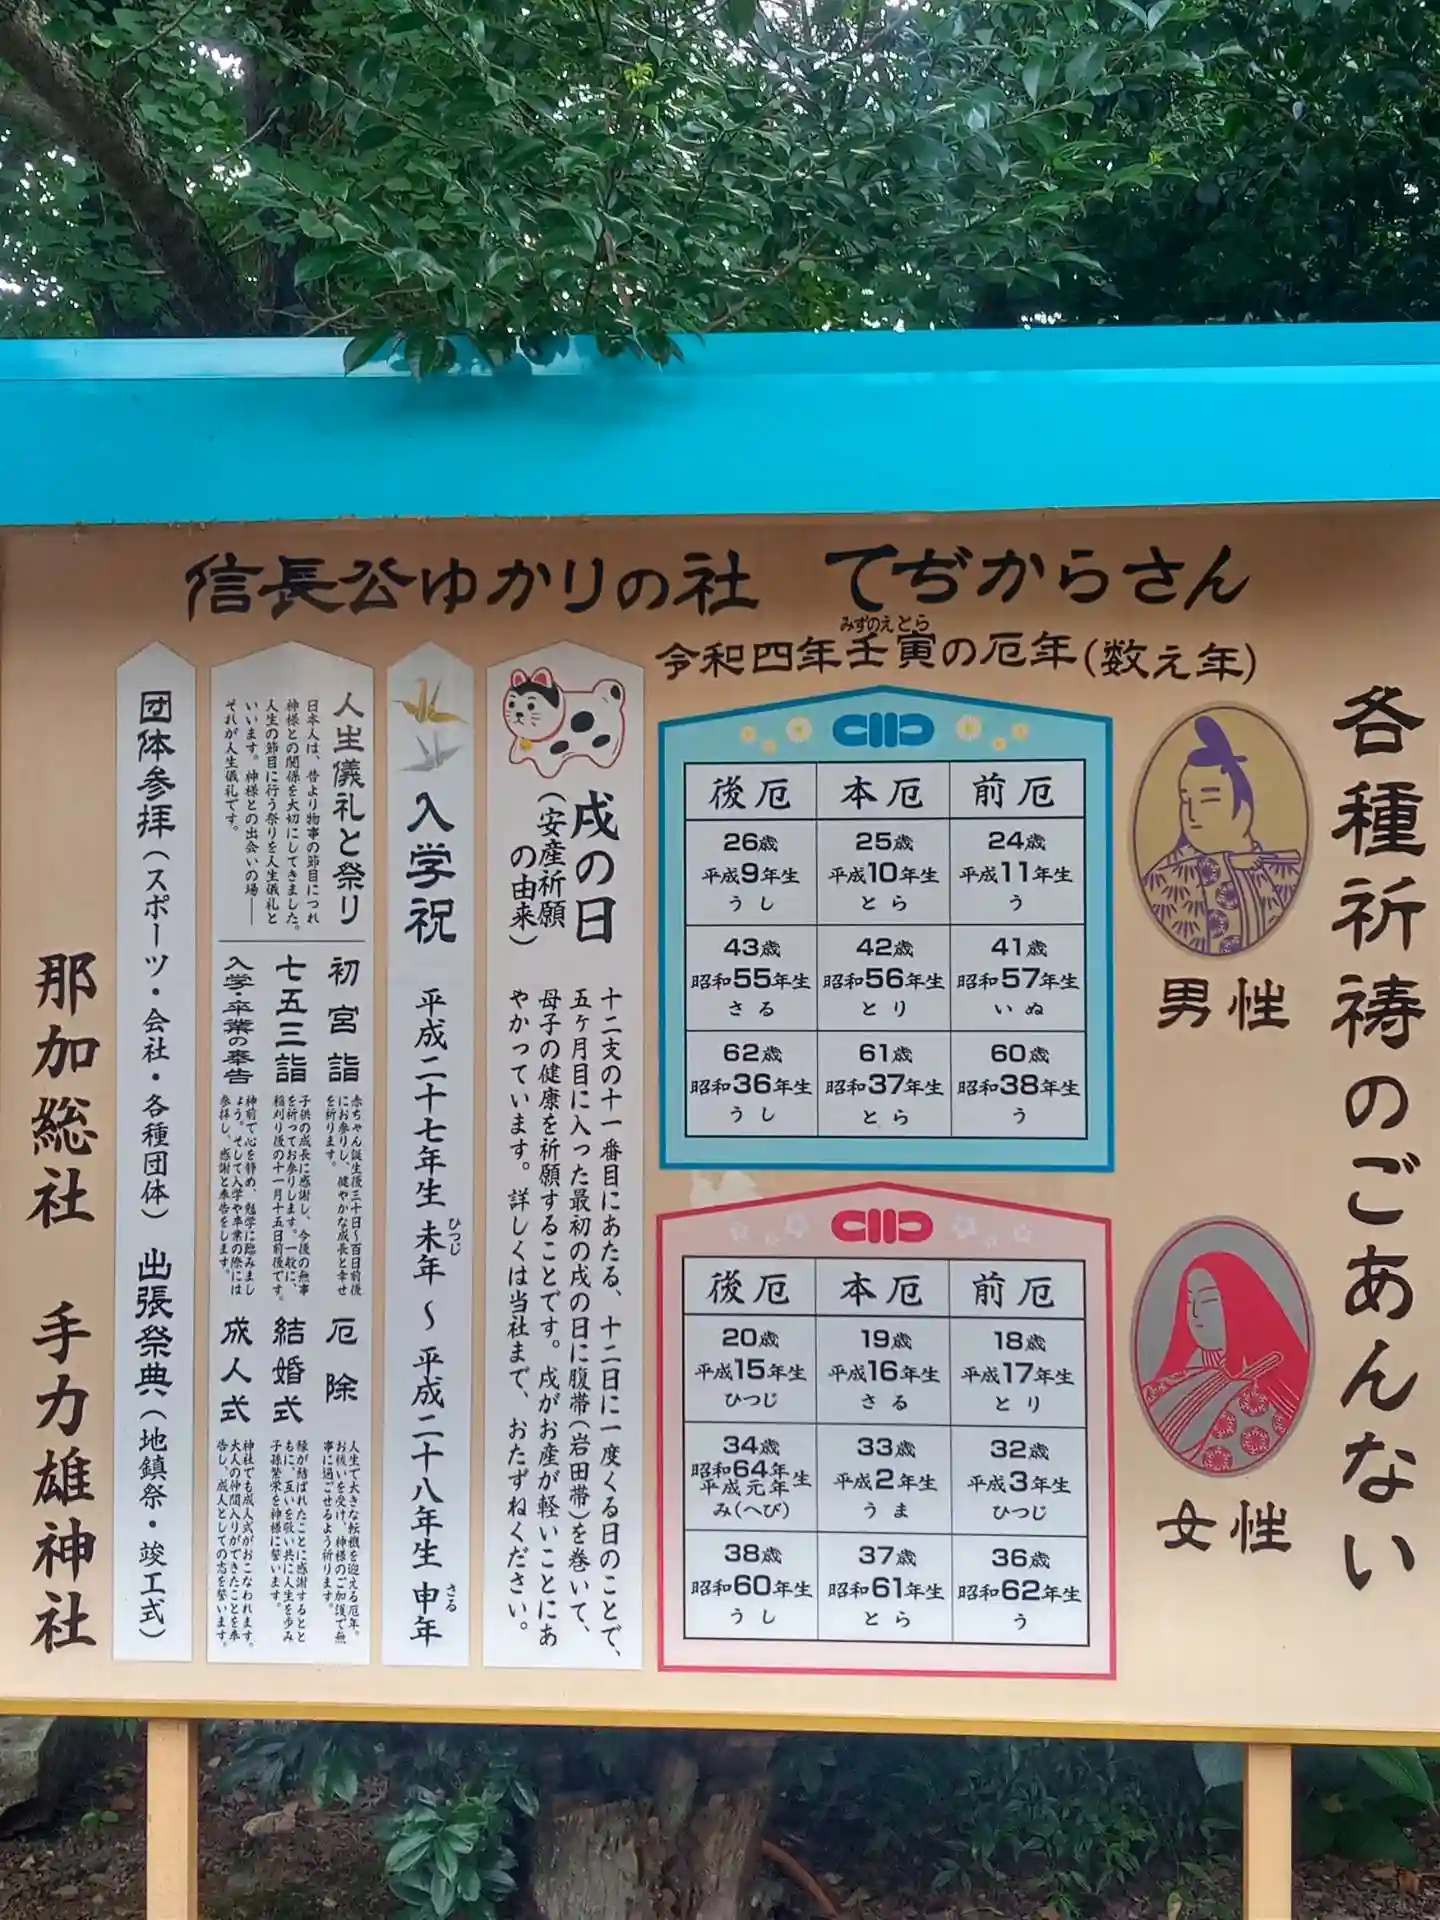 信長公ゆかりの社 てぢからさん
各種祈祷のごあんない
令和四年壬寅の厄年(数え年)
みずのえとら
男性
後厄 本厄 前厄
26歳 25歳 24歳
平成9年生 平成10年生 平成11年生
うし とら う
43歳 42歳 41歳
昭和55年生 昭和56年生 昭和57年生
さる とり いぬ
62歳 61歳 60歳
昭和36年生 昭和37年生 昭和38年生
うし とら う
女性
後厄 本厄 前厄
20歳 19歳 18歳
平成15年生 平成16年生 平成17年生
ひつじ さる とり
34歳 33歳 32歳
昭和64年生 平成元年 平成2年生 平成3年生
み(へび) うま ひつじ
38歳 37歳 36歳
昭和60年生 昭和61年生 昭和62年生
うし とら う
戌の日
(安産祈願
の由来)
十二支の十一番目にあたる、十二日に一度くる日のことで、
五ヶ月目に入った最初の戌の日に腹帯(岩田帯)を巻いて、
母子の健康を祈願することです。戌がお産が軽いことにあ
やかっています。詳しくは当社まで、おたずねください。
入学祝
平成二十七年生 未年 〜 平成二十八年生 申年
ひつじ
さる
人生儀礼と祭り
日本人は、昔より物事の節目につれ
神様との関係を大切にしてきました。
人生の節目に行う祭りを人生儀礼と
いいます。神様との出会いの場――
それが人生儀礼です。
初宮詣
赤ちゃん誕生後三十日〜百日前後
にお参りし、健やかな成長と幸せ
を祈ります。
厄除
人生で大きな転機を迎える厄年。
お祓いを受け、神様のご加護で無
事に過ごせるよう祈ります。
七五三詣
子供の成長に感謝し、今後の無事
を祈ってお参りします。一般に、
稲刈り後の十一月十五日前後です。
結婚式
縁が結ばれたことに感謝するとと
もに、互いを敬い共に人生を歩み
子孫繁栄を神様に誓います。
入学・卒業の奉告
神前で心を静め、勉学に臨みまし
ょう。そして入学や卒業の際には
参拝し、感謝と奉告をします。
成人式
神社でも成人式がおこなわれます。
大人の仲間入りができたことを奉
告し、成人としての志を誓います。
団体参拝(スポーツ・会社・各種団体) 出張祭典(地鎮祭・竣工式)
那加総社 手力雄神社